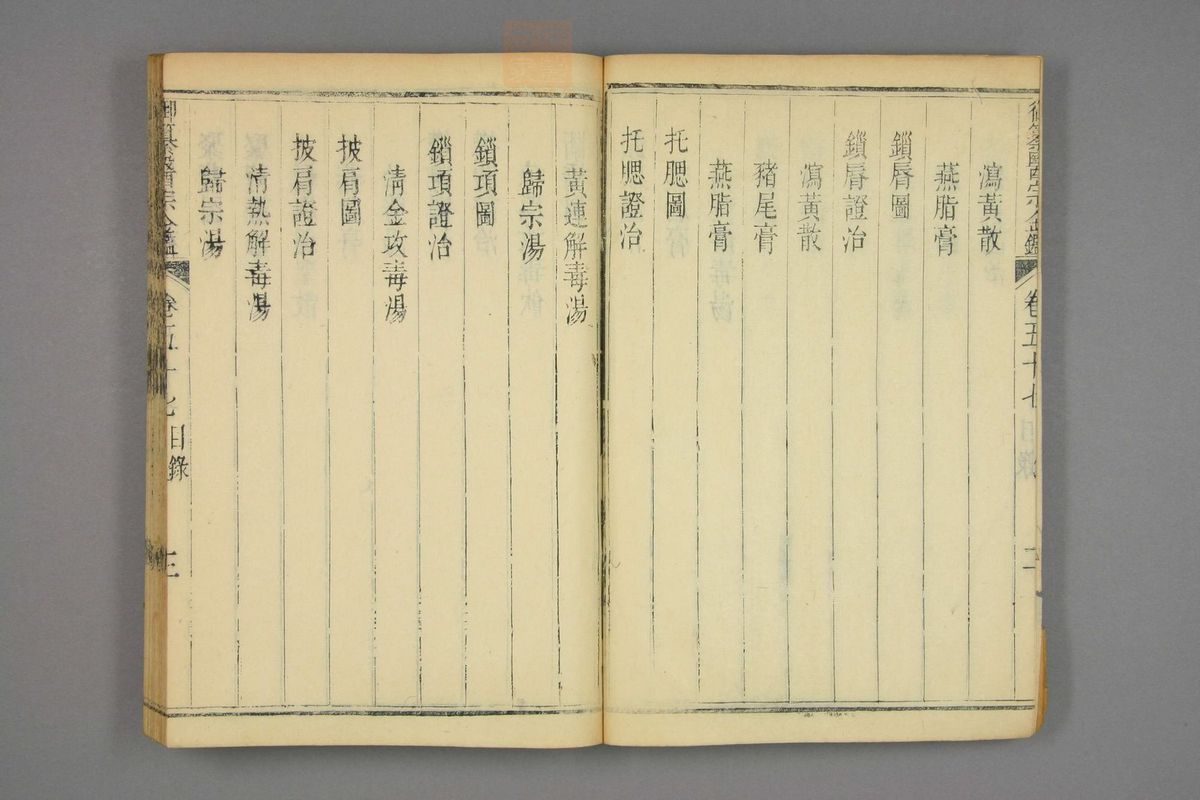 御纂醫宗金鑑 卷五十七 目錄 二
瀉黃散
燕脂膏
鎖唇圖
鎖唇證治
瀉黃散
豬尾膏
燕脂膏
托腮圖
托腮證治
黃連解毒湯
歸宗湯
鎖項圖
鎖項證治
清金攻毒湯
披肩圖
披肩證治
清熱解毒湯
歸宗湯
御纂醫宗金鑑 卷五十七 目錄 三